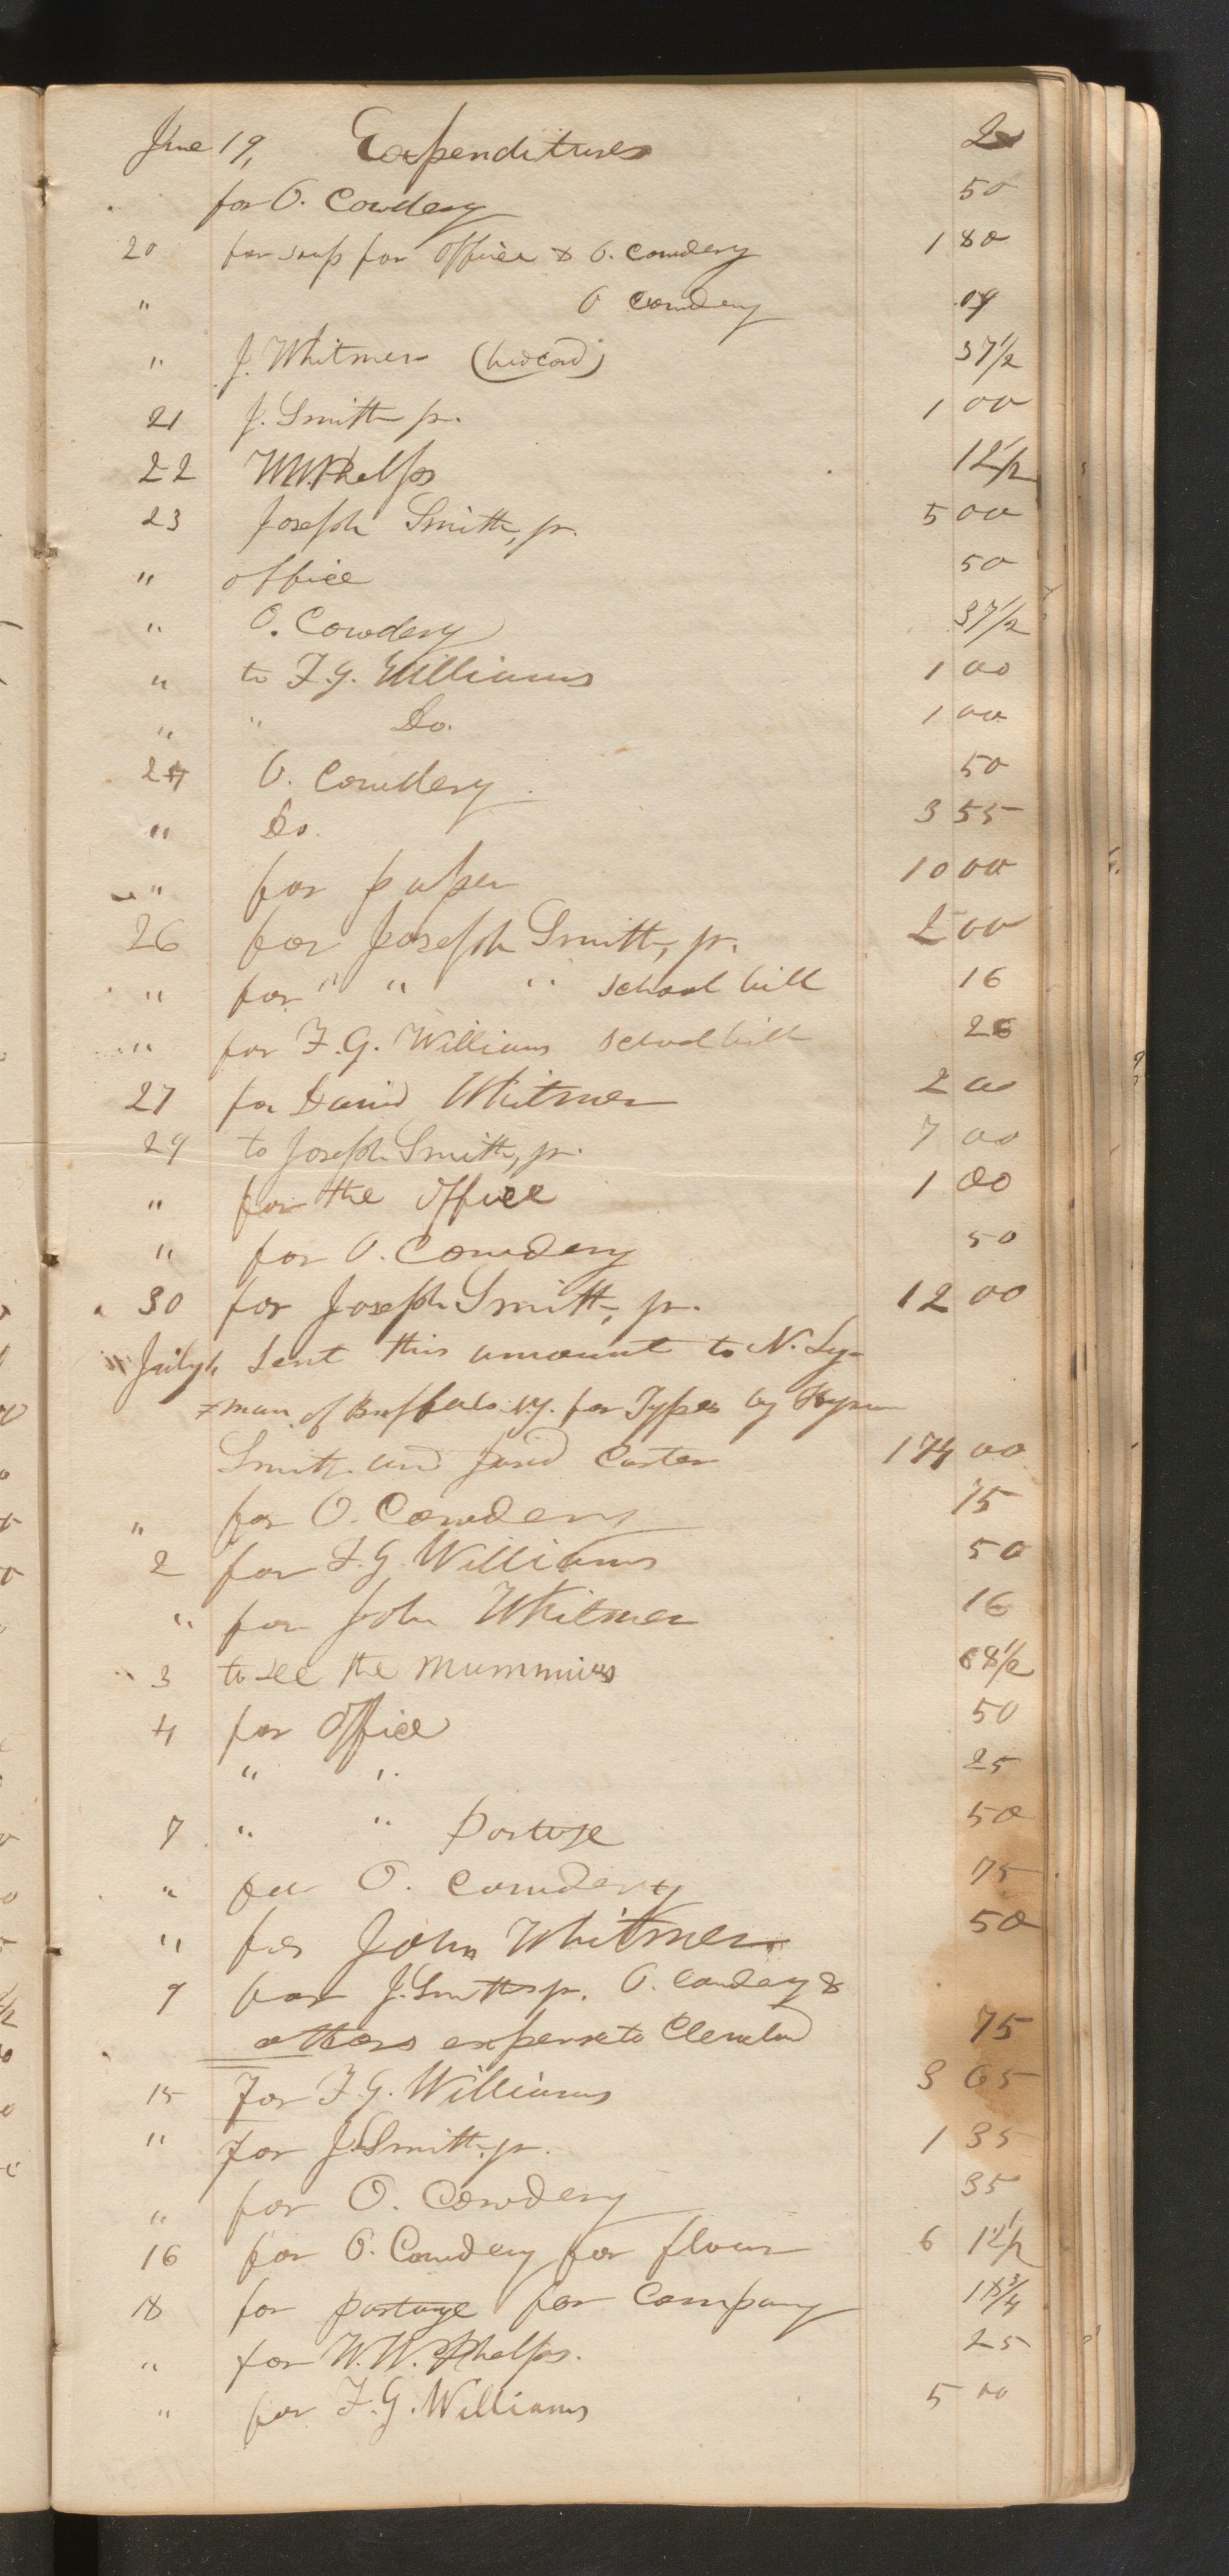 June 19, Expenditures
for O. Cowdery 50
20 for soap for office & O. Cowdery 1 80
" O Cowdery 09
" J. Whitmer 37 1/2
21 J. Smith jr. 1 00
22 W W. Phelps 12 1/2
23 Joseph Smith, jr. 5 00
" office 50
" O. Cowdery 37 1/2
" to F. G. Williams 1 00
" " Do. 1 00
24 O. Cowdery 50
" Do. 3 55
" for paper 10 00
26 for Joseph Smith, jr. 2 00
" for " " " school bill 16
" for F. G. Williams school bill
27 for David Whitmer 2 00
29 to Joseph Smith, jr. 7 00
" for the office 1 00
" for O. Cowdery 50
30 for Joseph Smith, jr. 12 00
July 1, Sent this amount to N. Ly=
=man of Buffalo N.Y. for Types by Hyrum
Smith and Jared Carter 174 00
" for O. Cowdery 75
2 for F. G. Williams 50
" for John Whitmer 16
3 to see the Mummies 68 1/2
4 for office 50
" " 25
7 " " Postage 50
" for O. Cowdery 75
" for John Whitmer 50
9 for J. Smith jr. O. Cowdery &
others expense to Cleveland 75
15 For F. G. Williams 3 65
" For J. Smith. jr. 1 35
" for O. Cowdery 35
16 for O. Cowdery for flour 6 12 1/2
18 for postage for Company 18 3/4
" for W. W. Phelps. 25
" for F. G. Williams 5 00